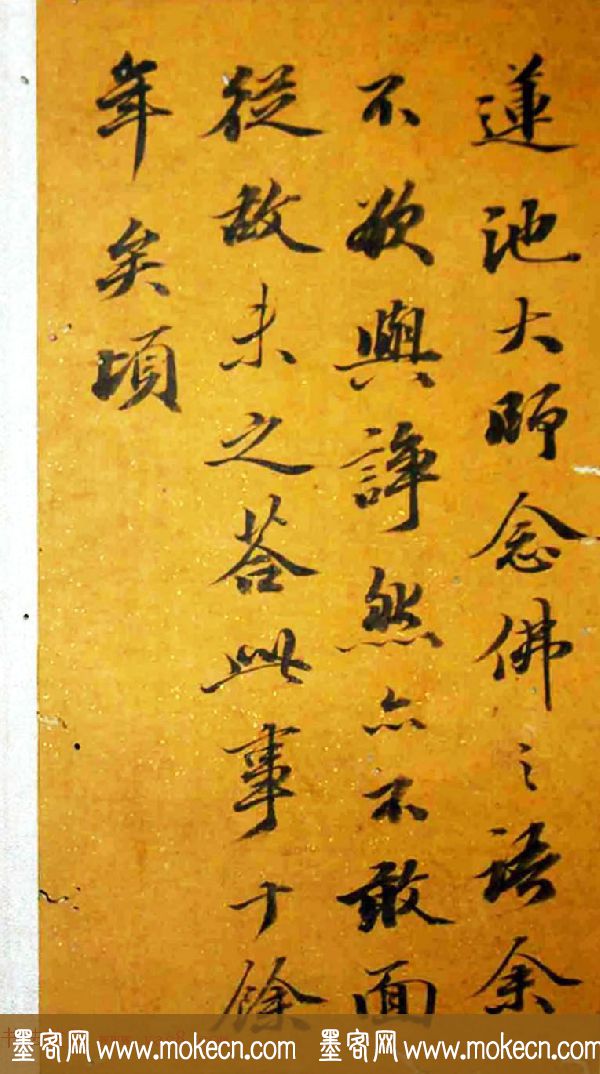 蓮池大師念佛之語余
不欲與諍然亦不敢面
從故未之荅此事十餘
年矣頃
墨客网 www.mokecn.com 墨客网 www.mokecn.com